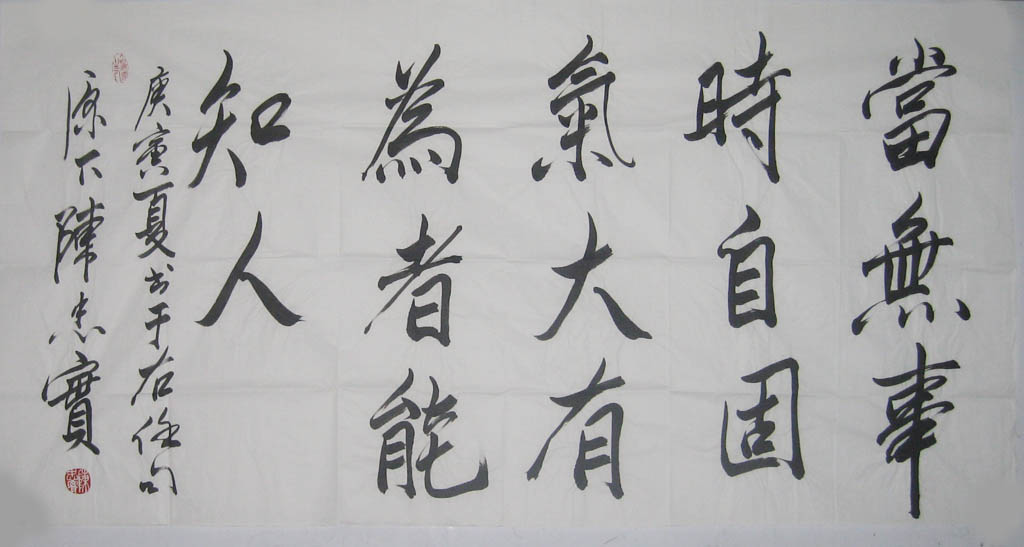 當無事
時自固
氣大有
為者能
知人
庚寅夏书于右任句
原下陳忠實